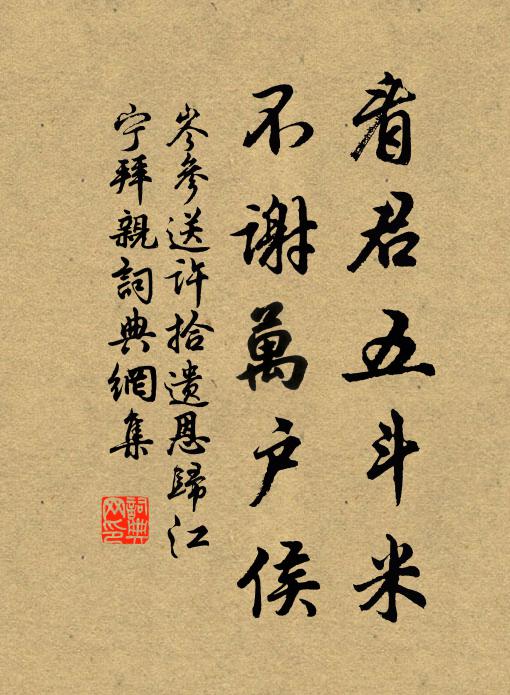 看君五斗米
不謝萬户侯
岑參送許拾遺恩歸江
宁拜親詞典網集
詞典
网印